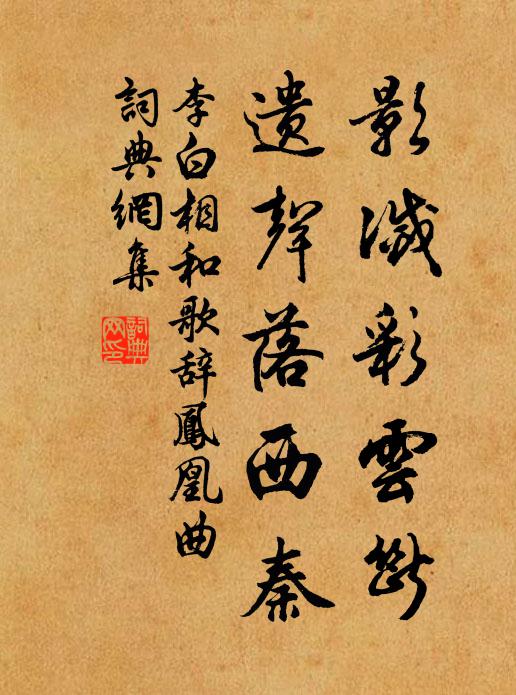 影滅彩雲斷
遺聲落西秦
李白相和歌辭鳳凰曲
詞典網集
詞典網印